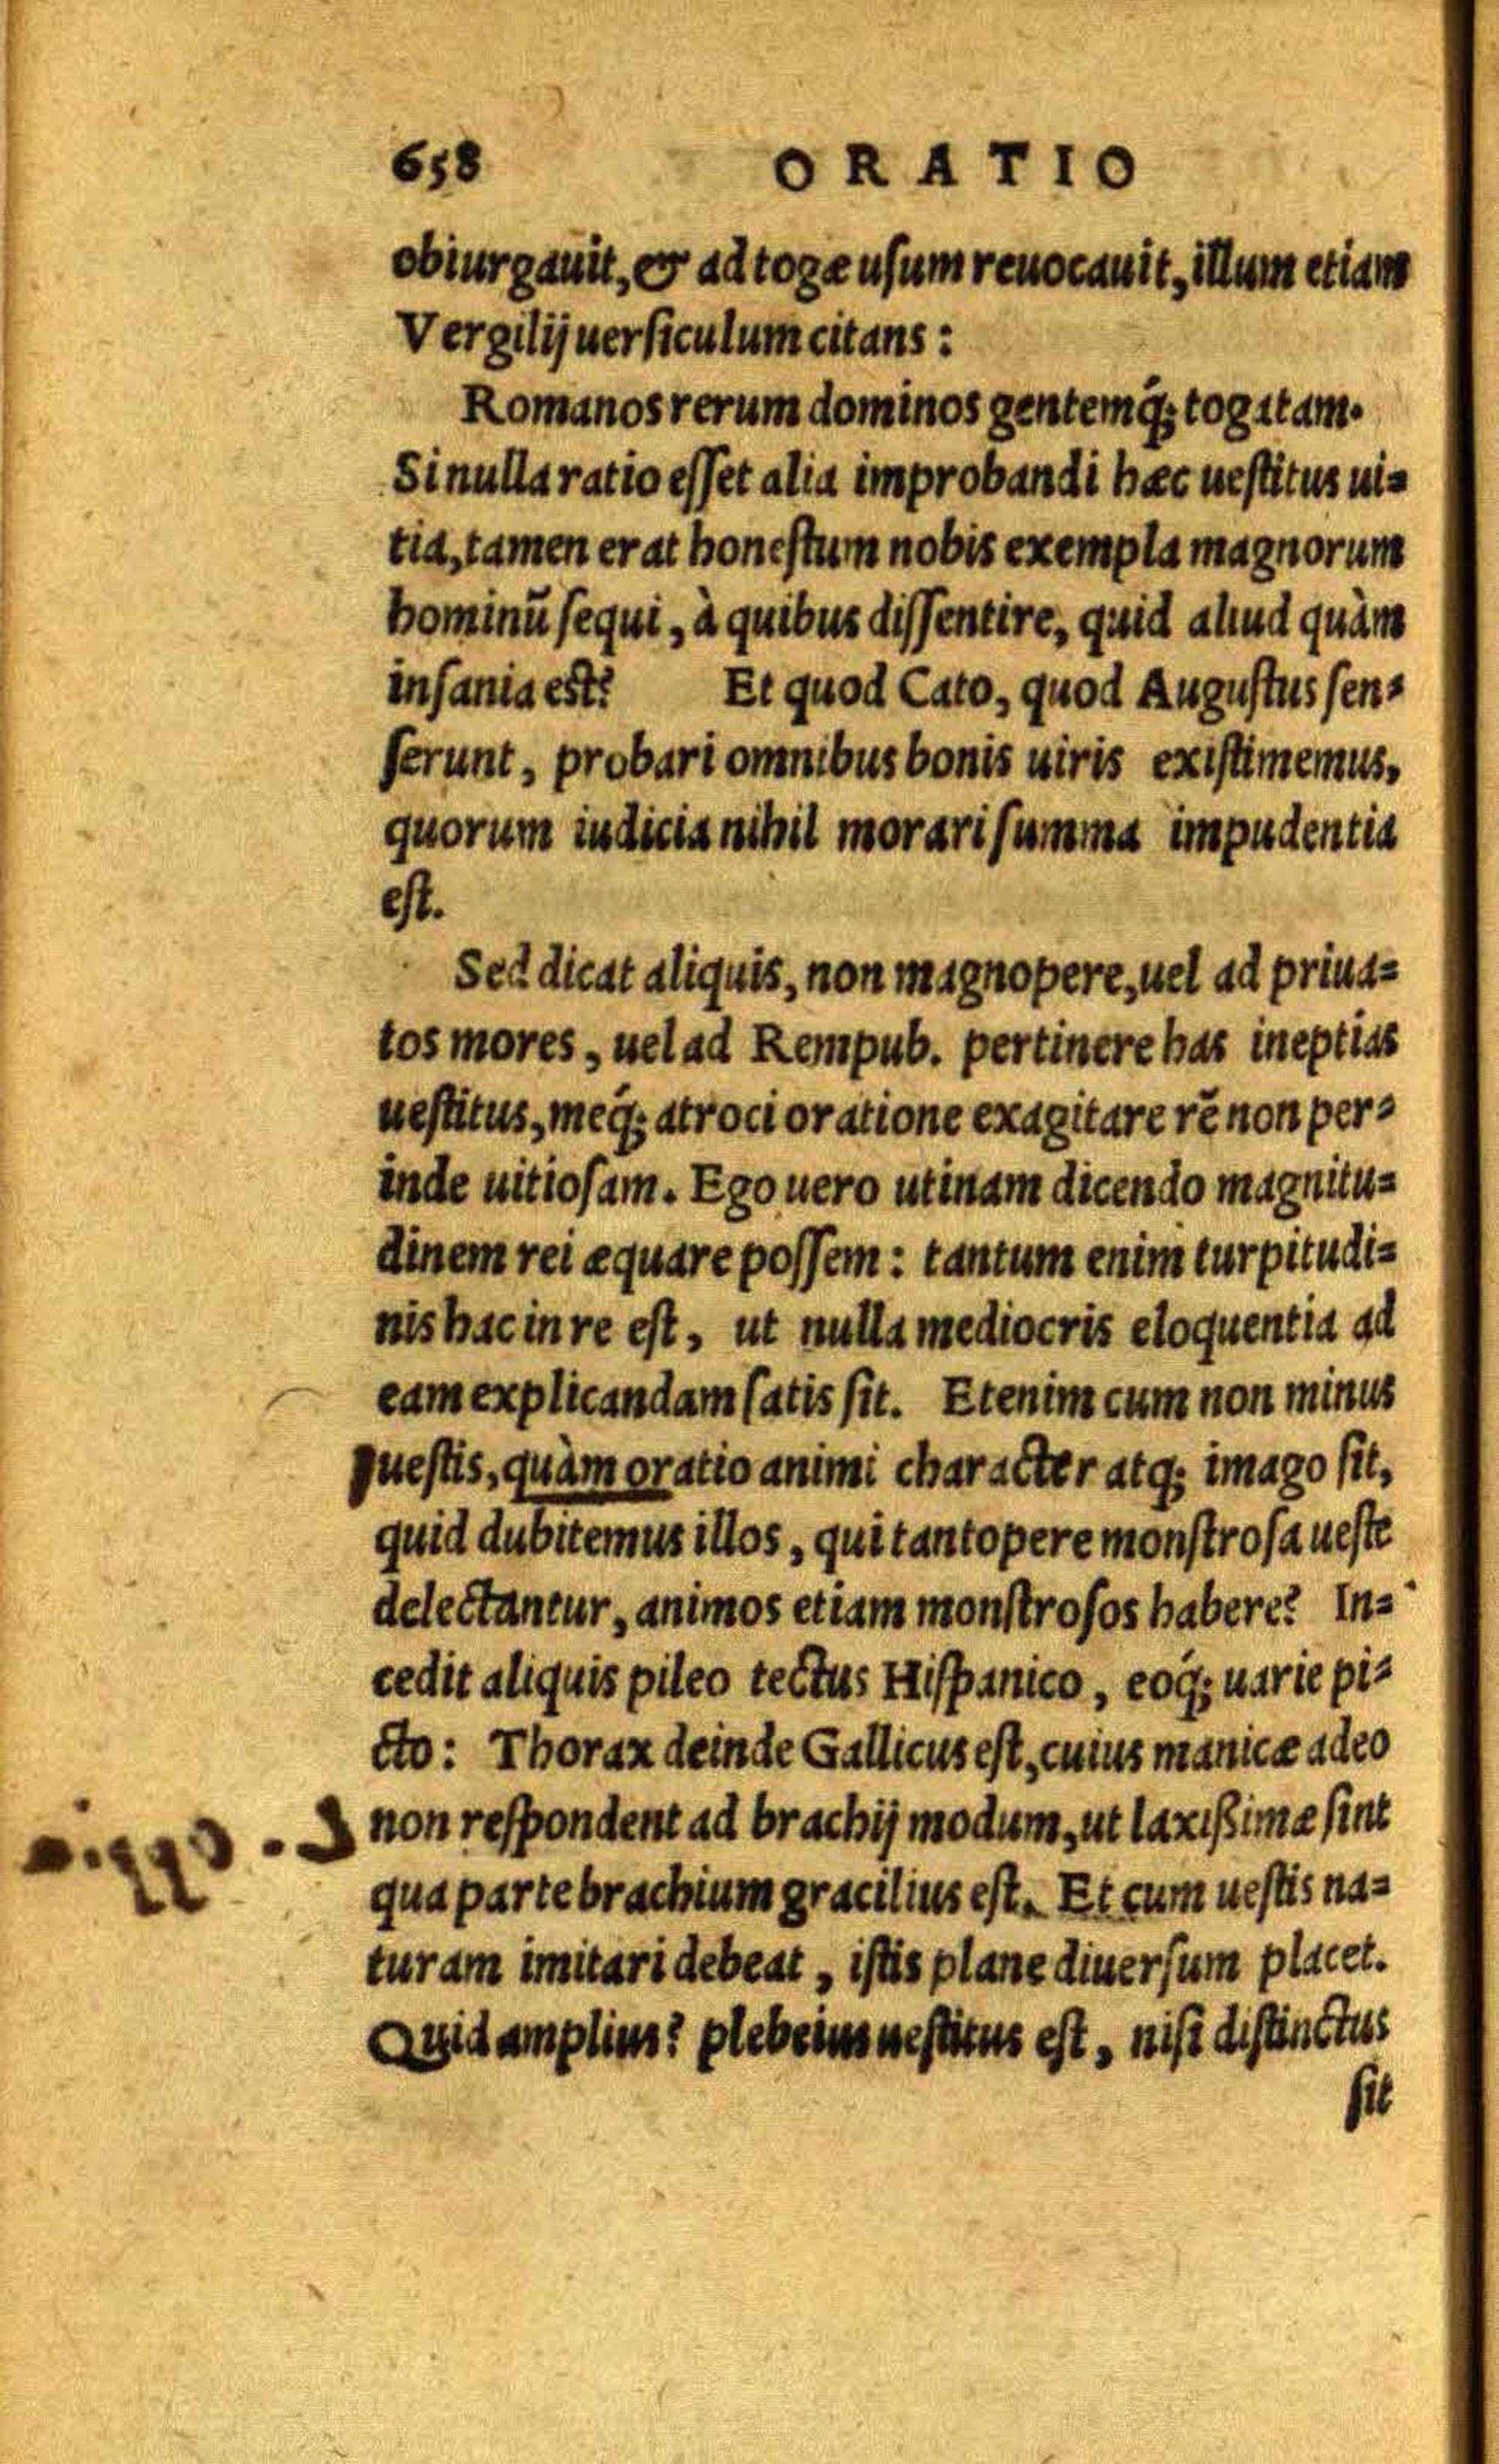 658 ORATIO
obiurgauit, & ad togæ uſum reuocauit, illum etiam
Vergilij uerſiculum citans:
Romanos rerum dominos gentemq́; togatam.
Si nulla ratio eſſet alia improbandi hæc ueſtitus ui=
tia, tamen erat honeſtum nobis exempla magnorum
hominũ ſequi, à quibus diſſentire, quid aliud quàm
inſania eſt? Et quod Cato, quod Auguſtus ſen=
ſerunt, probari omnibus bonis uiris exiſtimemus,
quorum iudicia nihil morari ſumma impudentia
eſt.
Sed dicat aliquis, non magnopere, uel ad priua=
tos mores, uel ad Rempub. pertinere has ineptias
ueſtitus, meq́; atroci oratione exagitare rẽ non per=
inde uitioſam. Ego uero utinam dicendo magnitu=
dinem rei æquare poſſem: tantum enim turpitudi=
nis hac in re eſt, ut nulla mediocris eloquentia ad
eam explicandam ſatis ſit. Etenim cum non minus
ueſtis, quàm oratio animi character atq; imago ſit,
quid dubitemus illos, qui tantopere monſtroſa ueſte
delectantur, animos etiam monſtroſos habere? In=
cedit aliquis pileo tectus Hiſpanico, eoq́; uarie pi=
cto: Thorax deinde Gallicus eſt, cuius manicæ adeo
non reſpondent ad brachij modum, ut laxißimæ ſint
qua parte brachium gracilius eſt. Et cum ueſtis na=
turam imitari debeat, iſtis plane diuerſum placet.
Quid amplius? plebeius ueſtitus eſt, niſi diſtinctus
ſit